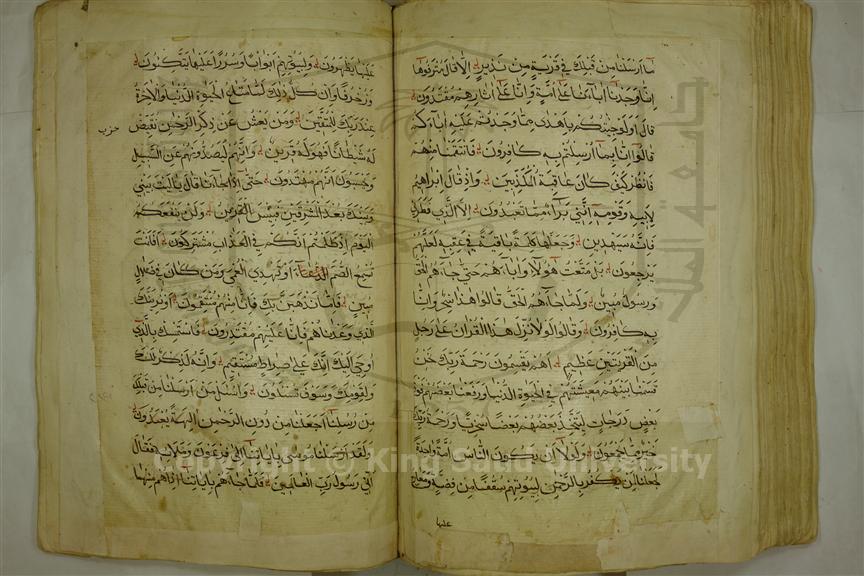 ما ارسلنا من قبلك في قرية من نذير الا قال مترفوها
انا وجدنا آباءنا على امة وانا على اثارهم مقتدون
قال اولو جئتكم باهدى مما وجدتم عليه اباءكم
قالوا انا بما ارسلتم به كافرون فانتقمنا منهم
فانظر كيف كان عاقبة المكذبين واذ قال ابراهيم
لابيه وقومه انني براء مما تعبدون الا الذي فطرني
فانه سيهدين وجعلها كلمة باقية في عقبه لعلهم
يرجعون بل متعت هولاء واباءهم حتى جاءهم الحق
ورسول مبين ولما جاءهم الحق قالوا هذا سحر وانا
به كافرون وقالوا لولا نزل هذا القران على رجل
من القريتين عظيم اهم يقسمون رحمة ربك نحن
قسمنا بينهم معيشتهم في الحيوة الدنيا ورفعنا بعضهم فوق
بعض درجات ليتخذ بعضهم بعضا سخريا ورحمة ربك
خير مما يجمعون ولولا ان يكون الناس امة واحدة
لجعلنا لمن يكفر بالرحمن لبيوتهم سقفا من فضة ومعارج
عليها
عليها يظهرون ولبيوتهم ابوابا وسررا عليها يتكئون
وزخرفا وان كل ذلك لما متاع الحيوة الدنيا والاخرة
عند ربك للمتقين ومن يعش عن ذكر الرحمن نقيض
حزب
له شيطانا فهو له قرين وانهم ليصدونهم عن السبيل
ويحسبون انهم مهتدون حتى اذا جاءنا قال يا ليت بيني
وبينك بعد المشرقين فبئس القرين ولن ينفعكم
اليوم اذ ظلمتم انكم في العذاب مشتركون افانت
تسمع الصم او تهدي العمي ومن كان في ضلال
مبين فاما نذهبن بك فانا منهم منتقمون او نرينك
الذي وعدناهم فانا عليهم مقتدرون فاستمسك بالذي
اوحي اليك انك على صراط مستقيم وانه لذكر لك
ولقومك وسوف تسئلون واسئل من ارسلنا من قبلك
من رسلنا اجعلنا من دون الرحمن الهة يعبدون
ولقد ارسلنا موسى باياتنا الى فرعون وملائه فقال
اني رسول رب العالمين فلما جاءهم باياتنا اذا هم منها
Copyright © King Saud University